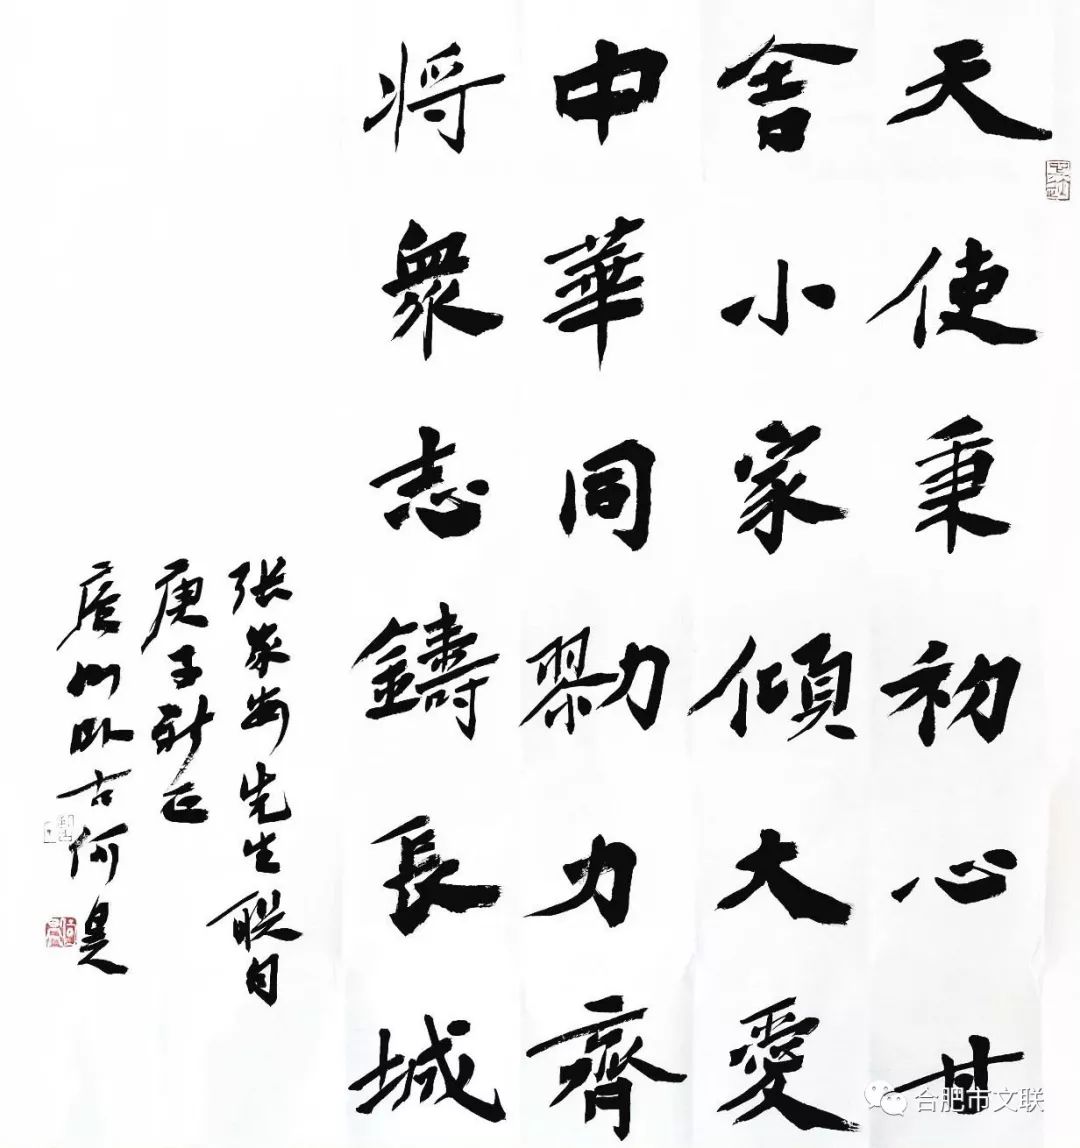 天使秉初心甘
舍小家傾大愛
中華同勠力齊
将衆志鑄長城
张家安先生联句
庚子新正
庐州卧古何
合肥市文联